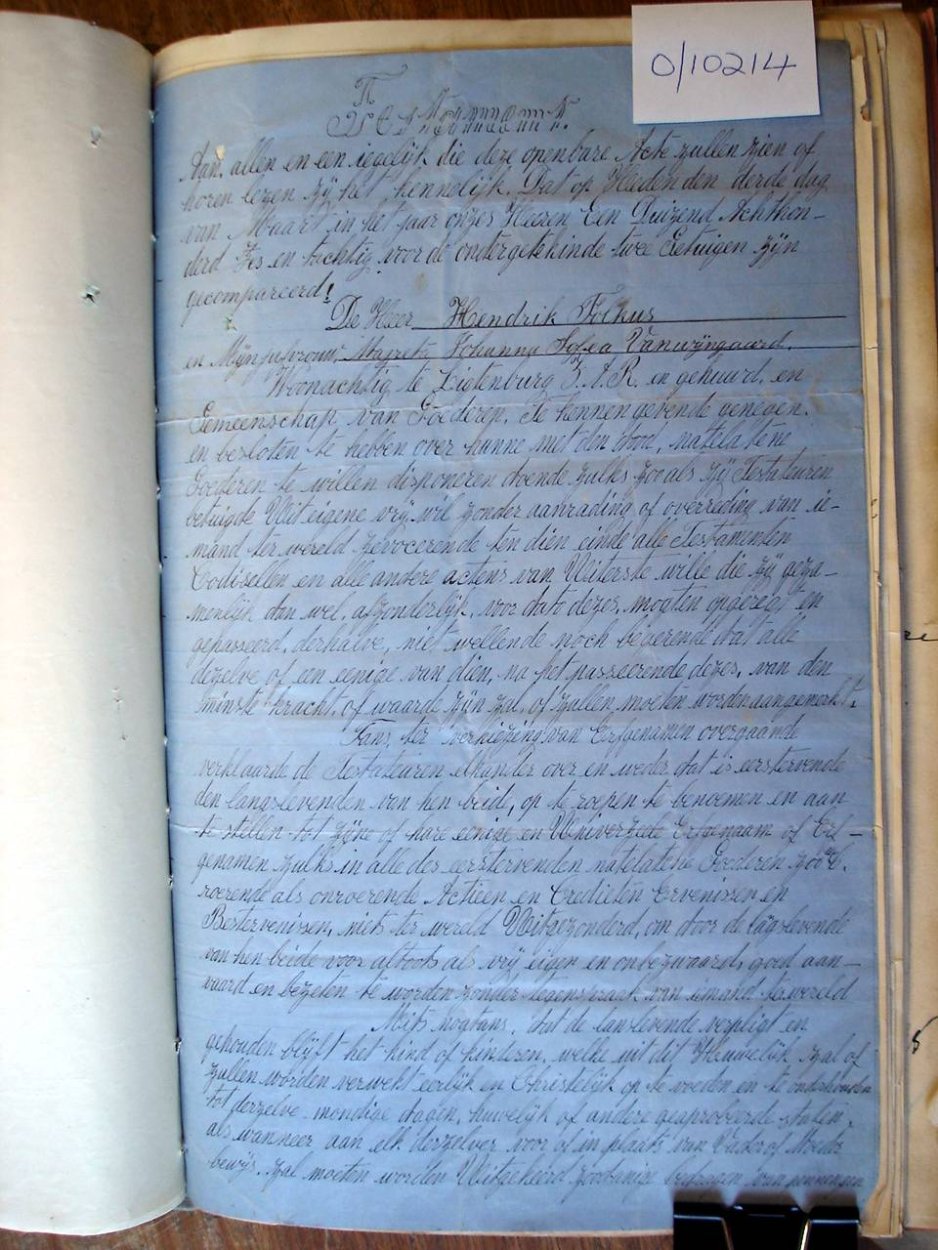 0/10214
TESTAMENT.
Aan allen en een iegelijk die deze openbare Acte zullen zien of
horen lezen zij het kennelijk. Dat op Heeden den derde dag
van Maart in het jaar onzes Heeren Een Duizend Achthon-
derd Zes en tachtig voor de ondergetekinde twee Getuigen zijn
gecompareerd!
De Heer Hendrik Fochus
en Mejufvrouw Johanna Vanwijngaard.
Woonachtig te Ligtenburg Z.A.R. en gehuwd, en
Gemeenschap van Goederen. Te kennen gevende genegen.
en besloten te hebben over hunne met den dood, natelatene
Goederen te willen disponeren doende zulks zooals zij Testateuren
betuigde Uit eigene vrij wil zonder aanrading of overreding van ie-
mand ter wereld revocerende ten dien einde alle Testamenten
Codisellen en alle andere actens van Uiterste wille die zij geza-
menlijk dan wel, afzonderlijk, voor dato dezes, mogten opgeregt en
gepasseerd, derhalve, niet wellende noch begeerende dat alle
dezelve of een eenige van dien, na het passeerende dezes, van den
minste kracht, of waarde zijn zal, of zullen moeten worden aangemerkt.
Tans, ter verkiezing van Erfgenamen overgaande
verklaarde de Testateuren elkander over en weder dat is eerstervende
den langslevenden van hen beide, op te roepen te benoemen en aan
te stellen tot zijne of hare eenige en Universeele Erfgenaam of Erf-
genamen zulks in alle des eerstervenden natelatene Goederen zoo
roerende als onroerende Actieen en Credieten Ervenissen en
Bestervenissen, niets ter wereld Uitgezonderd, om door de langslevende
van hen beide voor altoos als vrij eigen en onbezwaard, goed aan-
vaard en bezeten te worden zonder tegenspraak van iemand ter wereld
Mits nogtans, dat de lanslevende verpligt en
gehouden blijft het kind of kinderen, welke uit dit Huwelijk zal of
zullen worden verwekt eerlijk en Christelijk op te voeden en te onderhouden
tot derzelve mondige dagen, huwelijk of andere geaproberde staten
als wanneer aan elk derzelver voor of in plaats van Vader of Moeder
bewijs zal moeten worden Uitgekeerd zoodanige van penningen
5